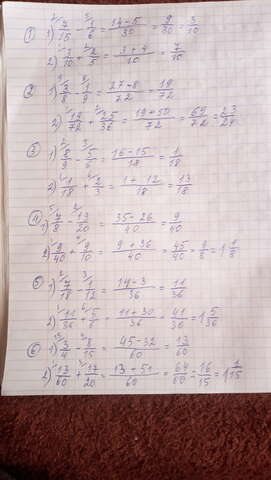 ① 1) 7/15 - 1/6 = (14-5)/30 = 9/30 = 3/10
2) 3/10 + 2/5 = (3+4)/10 = 7/10
② 1) 3/8 - 1/9 = (27-8)/72 = 19/72
2) 19/72 + 25/36 = (19+50)/72 = 69/72 = 23/24
③ 1) 8/9 - 5/6 = (16-15)/18 = 1/18
2) 1/18 + 2/3 = (1+12)/18 = 13/18
④ 1) 7/8 - 13/20 = (35-26)/40 = 9/40
2) 9/40 + 9/10 = (9+36)/40 = 45/40 = 9/8 = 1 1/8
⑤ 1) 7/18 - 1/12 = (14-3)/36 = 11/36
2) 11/36 + 5/6 = (11+30)/36 = 41/36 = 1 5/36
⑥ 1) 3/4 - 8/15 = (45-32)/60 = 13/60
2) 13/60 + 17/20 = (13+51)/60 = 64/60 = 16/15 = 1 1/15